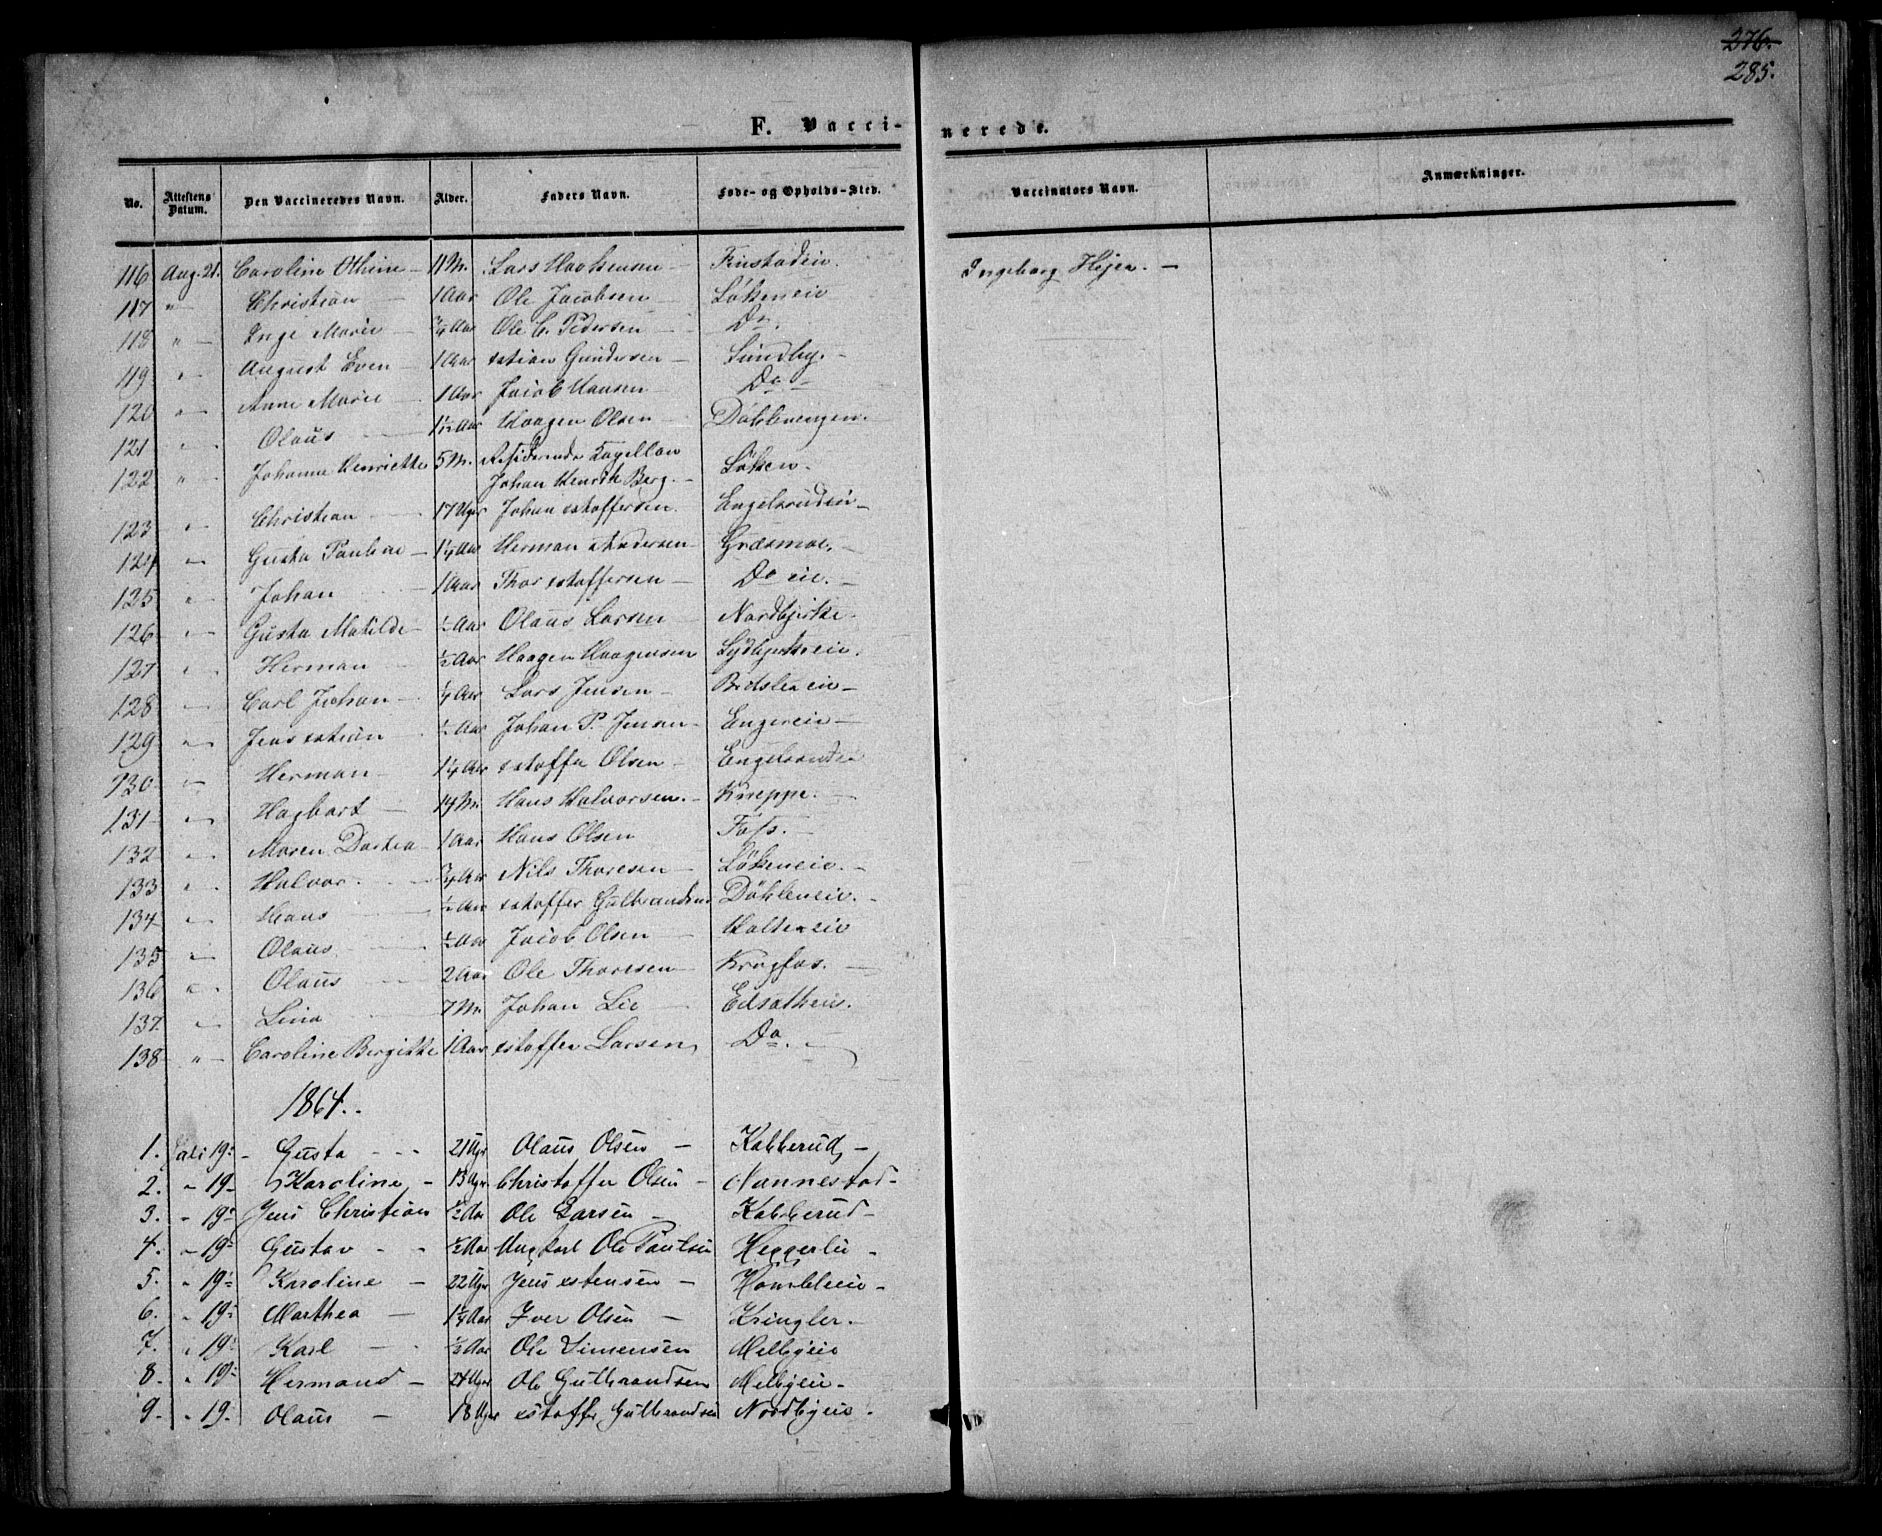 276.
285.
F. Vaccinerede.
No. Attestens Datum. Den Vaccineredes Navn. Alder. Faders Navn. Føde- og Opholds-Sted. Vaccinators Navn. Anmærkninger.
116 Aug. 21. Caroline Othine - 11 M. Lars - Finstadeie. Ingeborg Hejer. -
117 " Christian - 1 Aar Ole Jacobsen - Løkeneie
118 " - Inge Marie - 3/4 Aar Ole C. Pedersen - Do.
119 " August Even - 1 Aar xstian Gundersen - Sundby. -
120 " Anne Marie - 1 Aar Jacob Hansen - Do -
121 " Olaus - 1½ Aar Haagen Olsen - Døhlenengen.
122 " Johanne Henriette 5 M. Residerende Capellan
Johan Henrik Berg. - Løken.
123 " Christian - 17 Uger Johan xstoffersen. Engelsrudeie -
124 " Gusta Pauline - 1¼ Aar Herman Andersen - Græsmoe. -
125 " Johan 1 Aar Thor xstoffersen - Do eie. -
126 " Gusta Matilde - ½ Aar Olaus Larsen - Nordbjerke.
127 " Herman ½ Aar Haagen Haagensen Sydbjerkeeie.
128 " Carl Johan - ¼ Aar Lars Jensen -
129 " Jens xstian ½ Aar Johan P. Jensen - Engereie -
130 - Herman - 1¼ Aar xstoffer Olsen - Engelsrudeie
131 " Hagbart - 14 M. Hans Halvorsen. - Kneppe. -
132 " Maren Dortea - 1 Aar Hans Olsen Foss. -
133 " Halvor. - 3/4 Aar Nils Thoresen - Løkeneie. -
134 " Hans - ½ Aar xstoffer Gulbrandsen Døhleneie. -
135 " Olaus - ½ Aar Jacob Olsen - Holtereie
136 " Olaus - 2 Aar Ole Thoresen - Krogfos. -
137. " Lina - 7 M. Johan Lie - Eidsatheie.
138 " - Caroline Bergitte 1 Aar xstoffer Larsen Do. -
1864.
1. Juli 19: - Gusta - - - 21 Uger Olaus Olsen - Kabberud -
2. - 19 - Karoline - 13 Uger Christoffer Olsen - Nannestad -
3. - 19: Jens Christian ½ Aar Ole Larsen - Kabberud -
4. - 19: Gustav - - ½ Aar Ungkarl Ole Paulsen Heggerlie -
5. " 19: Karoline - 22 Uger Jens xstensen - Hombleeie -
6. - 19: Marthea - 1¼ Aar Iver Olsen - Kringler. -
7. " 19: Karl - ½ Aar Ole Simensen Melbyeie
8. " 19: Hermand - 24 Uger Ole Gulbrandsen Melbyeie -
9. " 19. Olaus - 18 Uger xstoffer Gulbrandsen Nordbyeie.